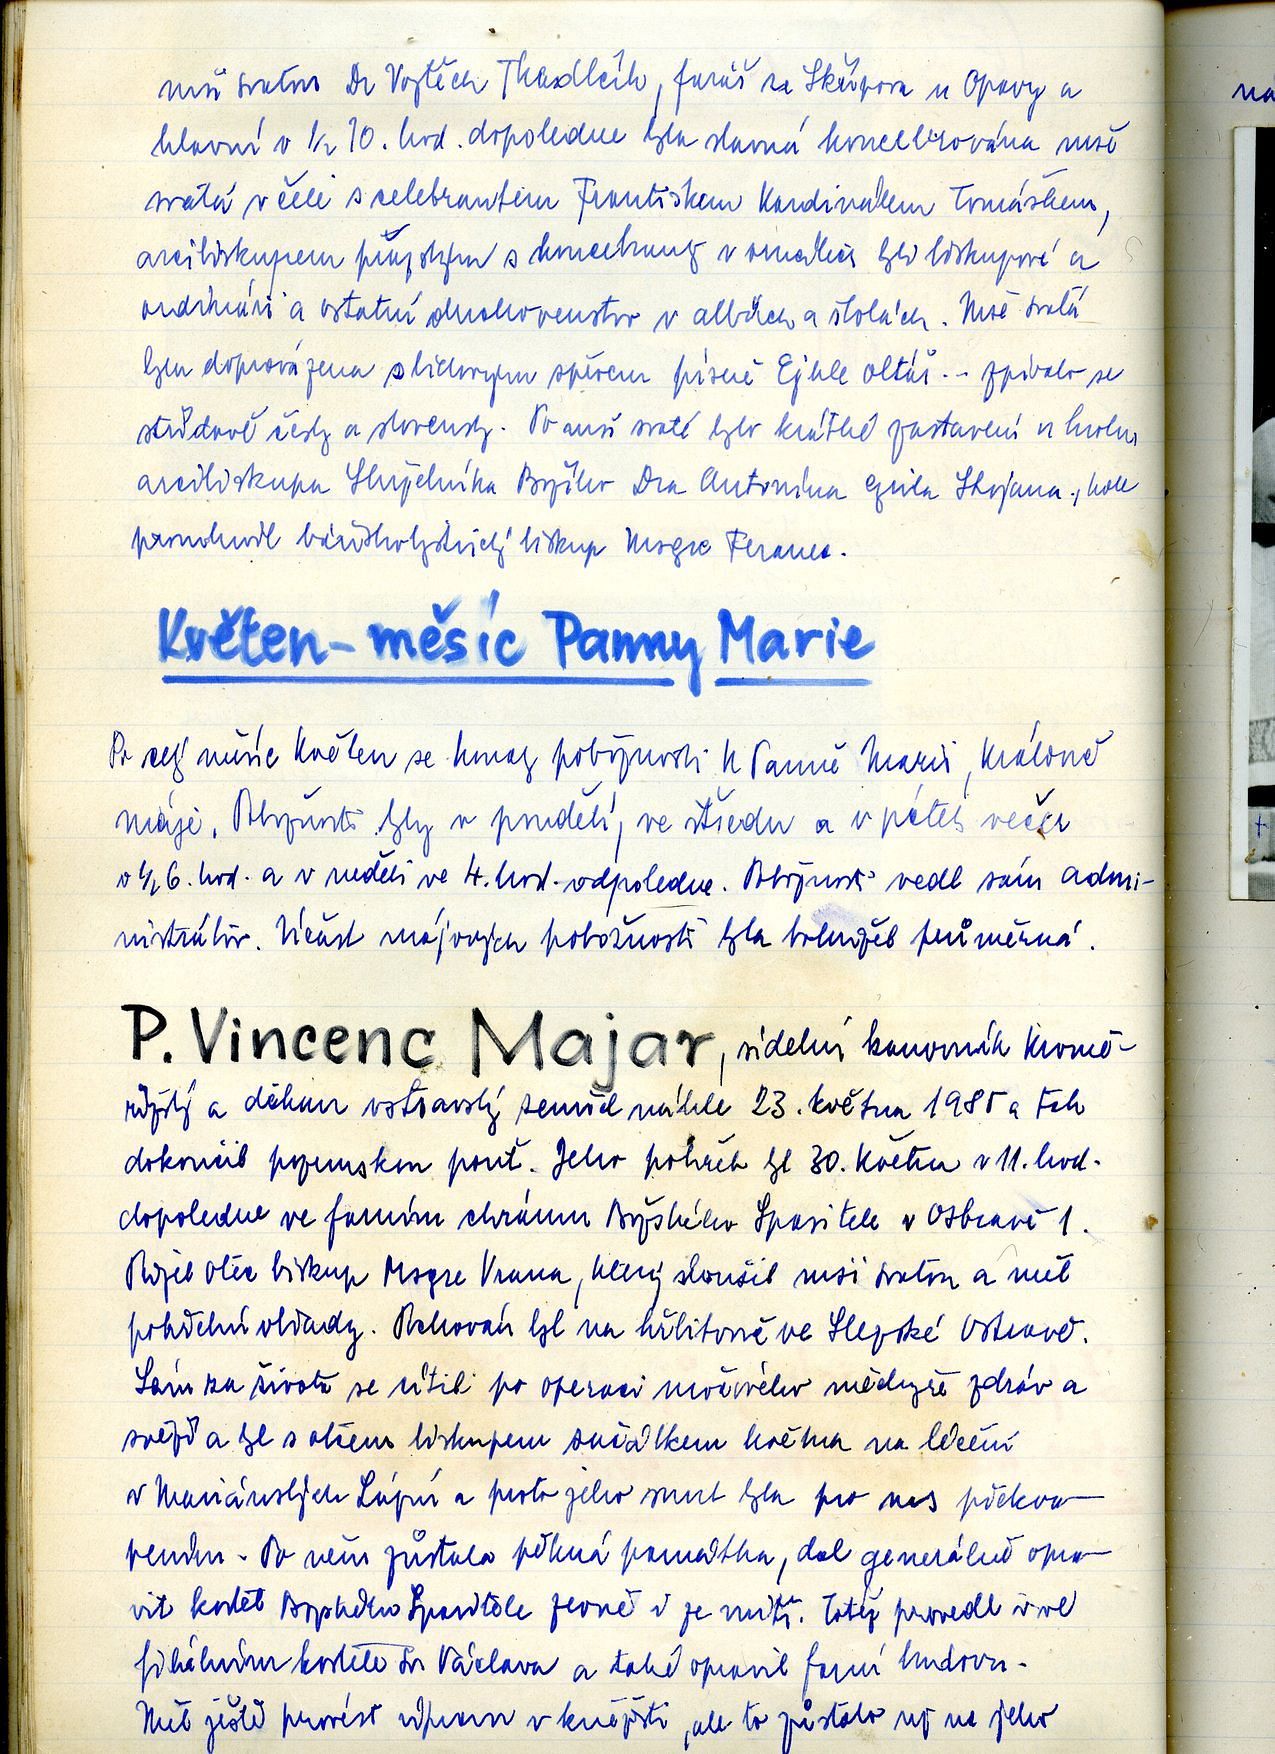 mši svatou Dr Vojtěch Tkadlčík, farář ze Skřipova u Opavy a
hlavní v 1/2 10. hod. dopoledne byla slavná koncelebrována mše
svatá v čele s celebrantem Františkem Kardinálem Tomáškem,
arcibiskupem pražským s koncelebranty byli biskupové a
ordináři a ostatní duchovenstvo v albách a štolách. Mše svatá
byla doprovázena s lidovým zpěvem písně Ejhle oltář .. zpívalo se
střídavě česky a slovensky. Po mši svaté bylo krátké zastavení u hrobu
arcibiskupa Služebníka Božího Dra Antonína Cyrila Stojana, kde
promluvil báňskobystrický biskup Msgre Feranec.
Květen - měsíc Panny Marie
Po celý měsíc Květen se konaly pobožnosti k Panně Marii, Královně
máje. Pobožnosti byly v pondělí, ve středu a v pátek večer
v 1/2 6. hod. a v neděli ve 4. hod. odpoledne. Pobožnosti vedl sám admi-
nistrátor. Účast májových pobožností byla bohužel průměrná.
P. Vincenc Majar, sídelní kanovník Kromě-
řížský a děkan ostravský zemřel náhle 23. května 1985 a tak
dokončil pozemskou pouť. Jeho pohřeb byl 30. Května v 11. hod.
dopoledne ve farním chrámu Božského Spasitele v Ostravě 1.
Přijel otec biskup Msgre Vrana, který sloužil mši svatou a měl
pohřební obřady. Pochován byl na hřbitově ve Slezské Ostravě.
Sám za života se cítil po operaci močového měchýře zdráv a
svěží a byl s otcem biskupem začátkem května na léčení
v Mariánských Lázní a proto jeho smrt byla pro nás překva-
pením. Po něm zůstala pěkná památka, dal generálně opra-
vit kostel Božského Spasitele zevně i ze vnitř. Totéž provedl i ve
filiálním kostele sv Václava a také opravil farní budovu.
Měl ještě provést úpravu v kněžišti, ale to zůstalo už na jeho